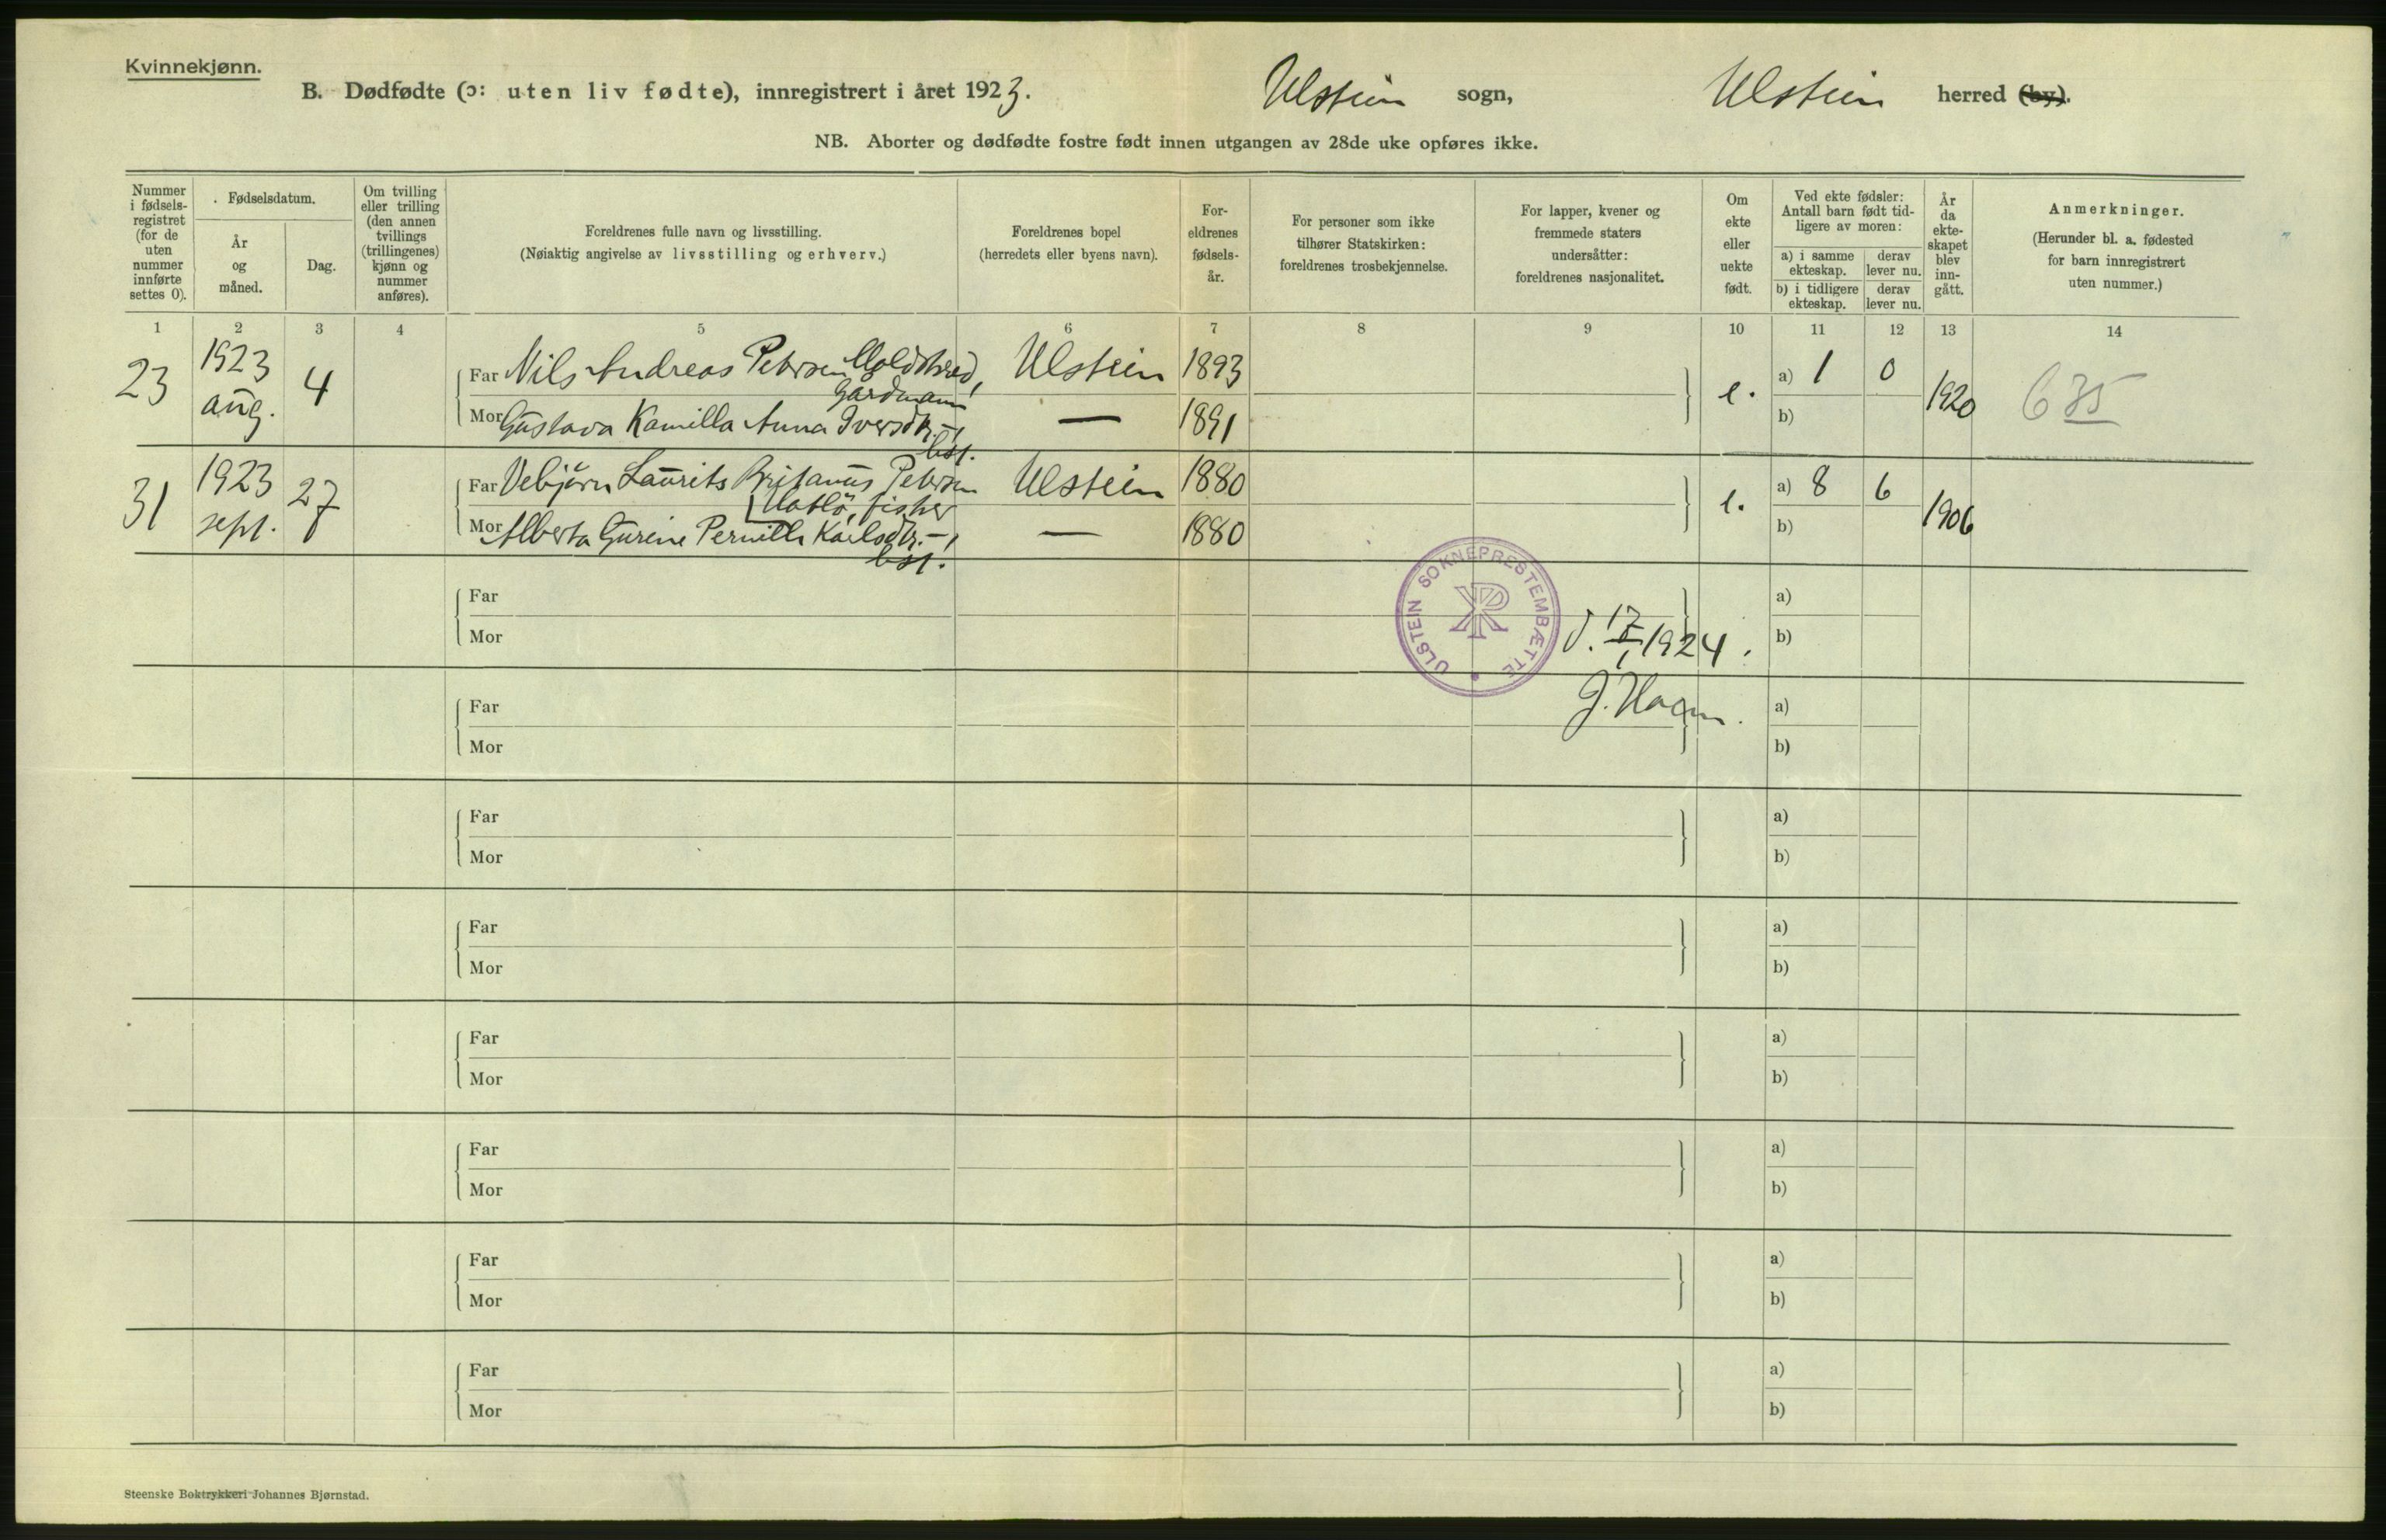 Kvinnekjønn.
B. Dødfødte (ɔ: uten liv fødte), innregistrert i året 1923. Ulstein sogn, Ulstein herred (by).
NB. Aborter og dødfødte fostre født innen utgangen av 28de uke opføres ikke.
Nummer
i fødsels-
registret
(for de
uten
nummer
innførte
settes 0).
Fødselsdatum.
År
og
måned.
Dag.
Om tvilling
eller trilling
(den annen
tvillings
(trillingenes)
kjønn og
nummer
anføres).
Foreldrenes fulle navn og livsstilling.
(Nøiaktig angivelse av livsstilling og erhverv.)
Foreldrenes bopel
(herredets eller byens navn).
For-
eldrenes
fødsels-
år.
For personer som ikke
tilhører Statskirken:
foreldrenes trosbekjennelse.
For lapper, kvener og
fremmede staters
undersåtter:
foreldrenes nasjonalitet.
Om
ekte
eller
uekte
født.
Ved ekte fødsler:
Antall barn født tid-
ligere av moren:
a) i samme
ekteskap.
derav
lever nu.
b) i tidligere
ekteskap.
derav
lever nu.
År
da
ekte-
skapet
blev
inn-
gått.
Anmerkninger.
(Herunder bl. a. fødested
for barn innregistrert
uten nummer.)
1 2 3 4 5 6 7 8 9 10 11 12 13 14
23 1923 aug. 4
Far Nils Andreas Petersen Moldskred, Ulstein 1893 e. a) 1 0 1920 635
Gardmann
Mor Gustava Kamilla Anna Iversdtr. — 1891 b)
hst.
31 1923 sept. 27
Far Vebjørn Laurits Britanus Petersen Ulstein 1880 e. a) 8 6 1906
Hatlö, fisker
Mor Alberta Gurine Pernille Karlsdtr. — 1880 b)
hst.
ULSTEIN SOKNEPRESTEMBÆTTE
Far a)
Mor 1924. b)
Far J. a)
Mor b)
Far a)
Mor b)
Far a)
Mor b)
Far a)
Mor b)
Far a)
Mor b)
Far a)
Mor b)
Far a)
Mor b)
Steenske Boktrykkeri Johannes Bjørnstad.